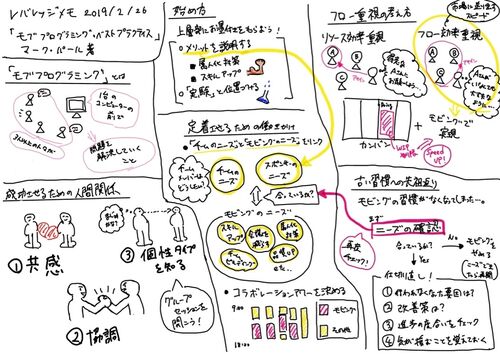 レバレッジメモ 2019/2/26
「モブプログラミング・ベストプラクティス」
マーク・パール著
「モブプログラミング」とは
1台の
コンピューターの
前で
みんなの力で
問題を
解決していくこと
成功させるための人間関係
①共感
②協調
③個性タイプ
を知る
グループ
セッションを
開こう!
始め方
上層部にお墨付きをもらおう!
○メリットを説明する
属人化対策
スキルアップ
○「実験」と位置づける
定着させるための働きかけ
・チームのニーズとモビングのニーズをリンク
チーム
メンバーは
どうしたい?
チームの
ニーズ
スポンサーの
ニーズ
合っているか?
モビングのニーズ
スキル
アップ
会議を
減らす
属人化
対策
チーム
ビルディング
品質UP
etc...
・コラボレーションアワーを決める
9:00
18:00
モビング
その他
フロー重視の考え方
市場に出すまでの
スピード
リソース効率重視
フロー効率重視
A
B
C
A
B
C
アサイン
アサイン
カンバン
Doing
WIP制限
Speed
UP!
モビングで
実現
古い習慣への先祖返り
モビングの習慣がなくなってしまった…。
まず
ニーズの確認
再度
チェック!
合っているか?
No
モビングを
やめる
Yes
仕切り直し!
①行われなくなった要因は?
②改善策は?
③進歩の度合いをチェック
④気が揉むことを覚えておく